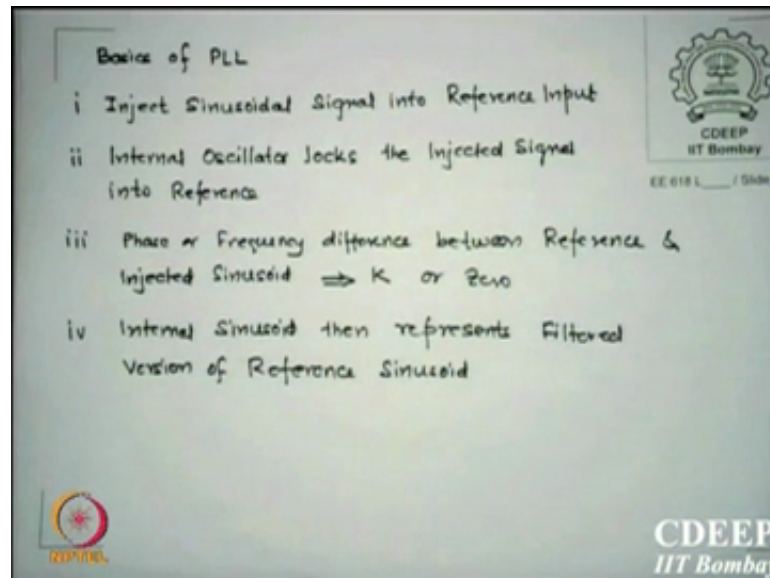 Basics of PLL
i Inject Sinusoidal Signal into Reference Input
ii Internal Oscillator locks the Injected Signal
into Reference
iii Phase or Frequency difference between Reference &
Injected Sinusoid ⇒ K or Zero
iv Internal Sinusoid then represents Filtered
Version of Reference Sinusoid
CDEEP
IIT Bombay
EE 618 L____ / Slide
NPTEL
CDEEP
IIT Bombay